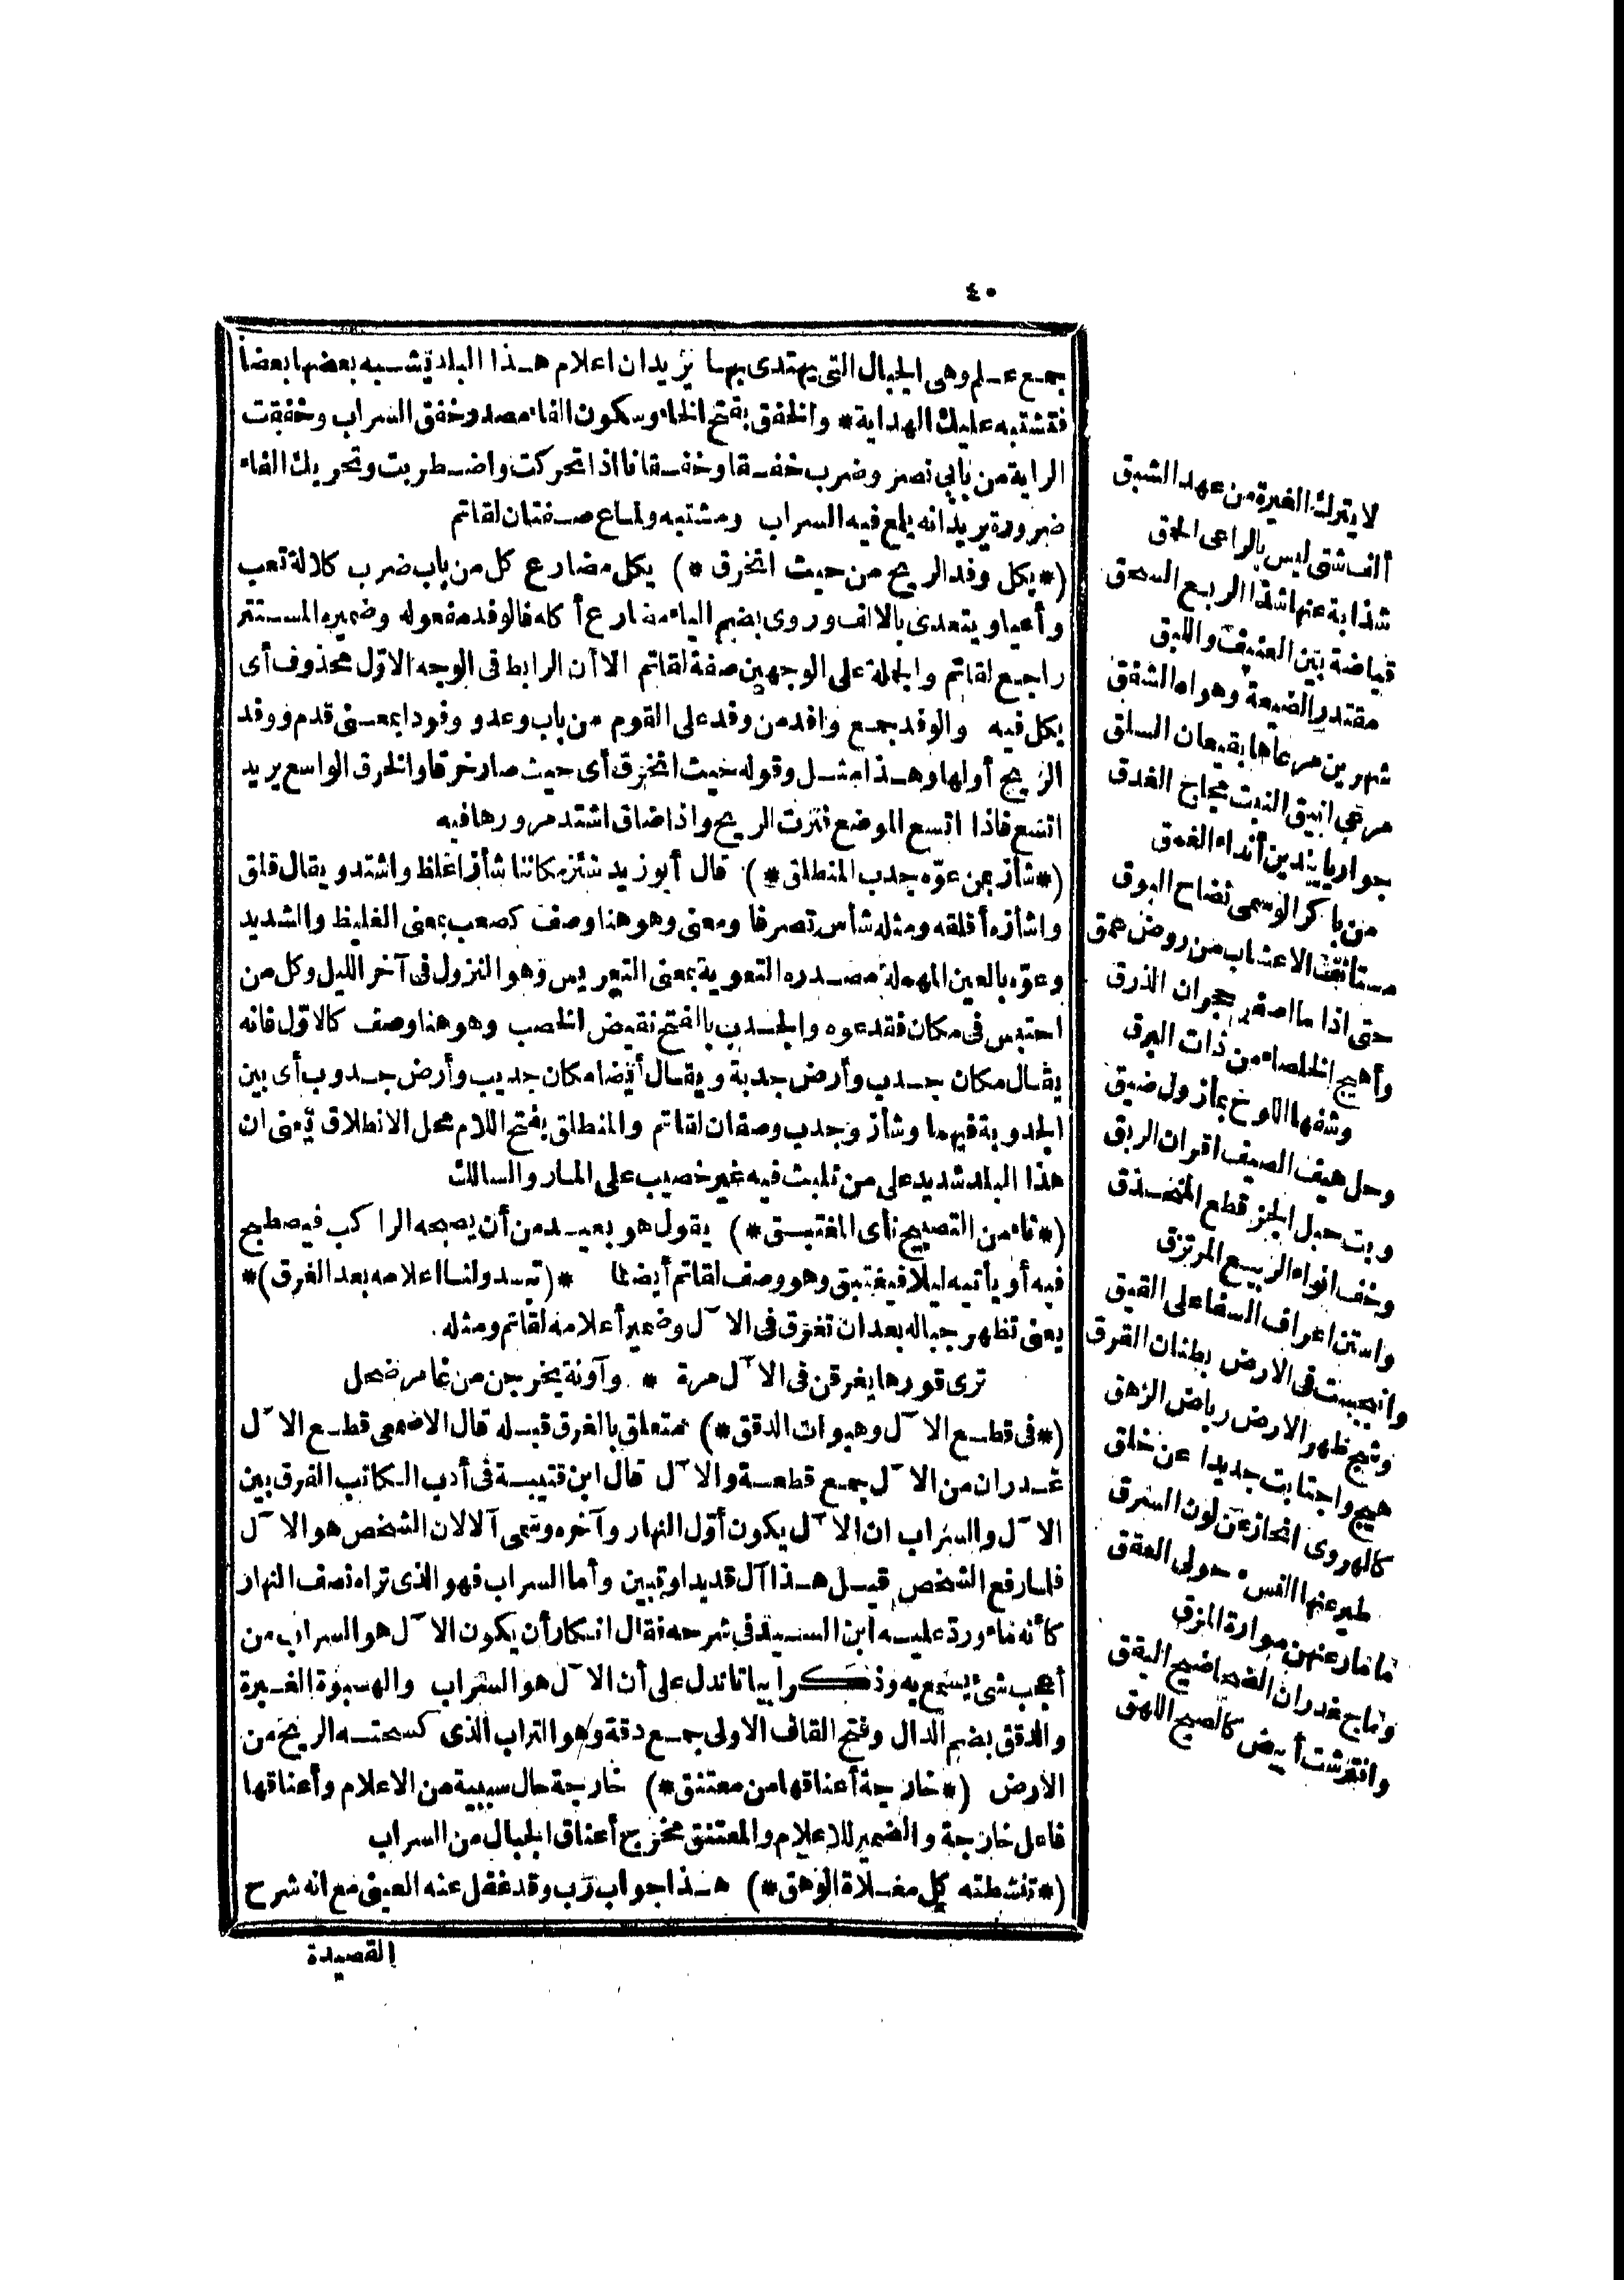 ٤٠
جمع علم وهي الجبال التي يهتدى بها يريد ان اعلام هذا البلد يشبه بعضها بعضا
فتشتبه عليك الهداية * والخفق بفتح الخاء وسكون الفاء مصدر خفق السراب وخفقت
الراية من بابي نصر وضرب خفقا وخفقانا اذا تحركت واضطربت وتحريك الفاء
ضرورة يريد انه يلمع فيه السراب ومشتبه ولماع صفتان لقاتم
(* يكل وفد الريح من حيث انخرق *) يكل مضارع كل من باب ضرب كلالة تعب
وأعيا ويتعدى بالالف وروى بضم الياء مضارع أكله فالوفد مفعوله وضميره المستتر
راجع لقاتم والجملة على الوجهين صفة لقاتم الا أن الرابط في الوجه الاوّل محذوف أى
يكل فيه والوفد جمع وافد من وفد على القوم من باب وعد ووفودا بمعنى قدم ووفد
الريح أولها وهذا مثل وقوله حيث انخرق أى حيث صار خرقا والخرق الواسع يريد
اتسع فاذا اتسع الموضع فترت الريح واذا ضاق اشتد مرورها فيه
(* شأز بمن عوّه جدب المنطلق *) قال أبو زيد شئز مكاننا شأزا غلظ واشتد ويقال قلق
واشأزه أقلقه ومثله شأس تصرفا ومعنى وهو هنا وصف كصعب بمعنى الغليظ والشديد
وعوّه بالعين المهملة مصدره التعويه بمعنى التعريس وهو النزول في آخر الليل وكل من
احتبس في مكان فقد عوه والجدب بالفتح نقيض الخصب وهو هنا وصف كالاوّل فانه
يقال مكان جدب وأرض جدبة ويقال أيضا مكان جديب وأرض جدوب أى بين
الجدوبة فيهما وشأز وجدب وصفان لقاتم والمنطلق بفتح اللام محل الانطلاق يعنى ان
هذا البلد شديد على من تلبث فيه غير خصيب على المار والسالك
(* ناء من التصبيح نأى المغتبق *) يقول هو بعيد من أن يصبحه الراكب فيصطبح
فيه أو يأتيه ليلا فيغتبق وهو وصف لقاتم أيضا *(تبدو لنا اعلامه بعد الغرق)*
يعنى تظهر جباله بعد ان تغرق في الآل وضمير أعلامه لقاتم ومثله
ترى قورها يغرقن في الآل مرة * وآونة يخرجن من غامر ضحل
(* في قطع الآل وهبوات الدقق *) متعلق بالغرق قبله قال الاصمعي قطع الآل
غدران من الآل جمع قطعة والآل قال ابن قتيبة في أدب الكاتب الفرق بين
الآل والسراب ان الآل يكون أوّل النهار وآخره وسمى آلا لان الشخص هو الآل
فلما رفع الشخص قيل هذا آل قد بدا وتبين وأما السراب فهو الذى تراه نصف النهار
كأنه ماء وردّ عليه ابن السيد في شرحه فقال انكار أن يكون الآل هو السراب من
أعجب شئ يسمع به وذكر ابياتا تدل على أن الآل هو السراب والهبوة الغبرة
والدقق بضم الدال وفتح القاف الاولى جمع دقة وهو التراب الذى كسحته الريح من
الارض (* خارجة أعناقها من معتنق *) خارجة حال سببية من الاعلام وأعناقها
فاعل خارجة والضمير للاعلام والمعتنق مخرج أعناق الجبال من السراب
(* تنشطته كل مغلاة الوهق *) هذا جواب رب وقد غفل عنه العيني مع انه شرح
القصيدة
لا يترك الغيرة من عهد الشبق
ألف شتى ليس بالراعى الحمق
شذابة عنها شذا الربع السحق
قباضة بين العنيف واللبق
مقتدر الضيعة وهواه الشفق
شهرين مرعاها بقيعان السلق
مرعى انيق النبت مجاج الغدق
جوازيا يخبطن أنداء الغمق
من باكر الوسمى نضاح البوق
مستأنف الاعشاب من روض سمق
حتى اذا ما اصفر حجران الذرق
وأهيج الخلصاء من ذات البرق
وشفها اللوح بمأزول ضيق
وحل هيف الصيف اقران الربق
وبت حبل الجزء قطع المنحذق
وخف انواء الربيع المرتزق
واستن اعراف السفا على القيق
وانجبت في الارض بطنان القرق
وشج ظهر الارض رباض الزهق
هيج واجتابت جديدا عن خلق
كالهروى انجاز عن لون السرق
طير عنها النس حولى العقق
ما مار عنهن موارة المزق
وماج غدران الضحاضيح اليقق
وافترشت أبيض كالصبح اللهق